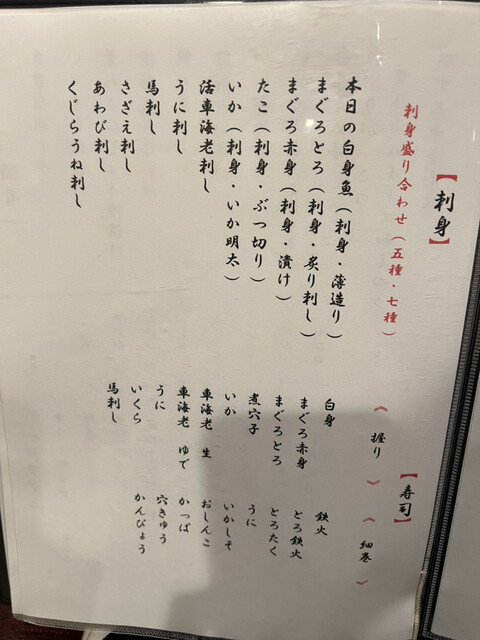 【刺身】
刺身盛り合わせ（五種・七種）
本日の白身魚（刺身・薄造り）
まぐろとろ（刺身・炙り刺し）
まぐろ赤身（刺身・漬け）
たこ（刺身・ぶつ切り）
いか（刺身・いか明太）
活車海老刺し
うに刺し
馬刺し
さざえ刺し
あわび刺し
くじらうね刺し
【寿司】
《握り》
白身
まぐろ赤身
まぐろとろ
煮穴子
いか
車海老 生
車海老 ゆで
うに
いくら
馬刺し
《細巻》
鉄火
とろ鉄火
とろたく
うに
いかしそ
おしんこ
かっぱ
穴きゅう
かんぴょう